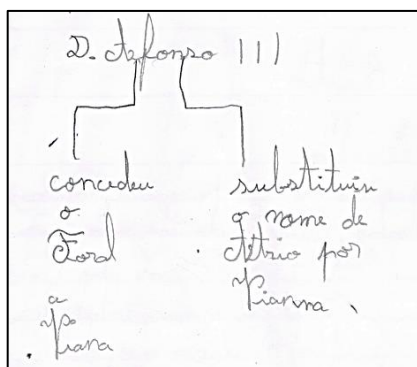 D. Afonso III
concedeu
o
Foral
a
Viana
substituiu
o nome de
Átrio por
Vianna